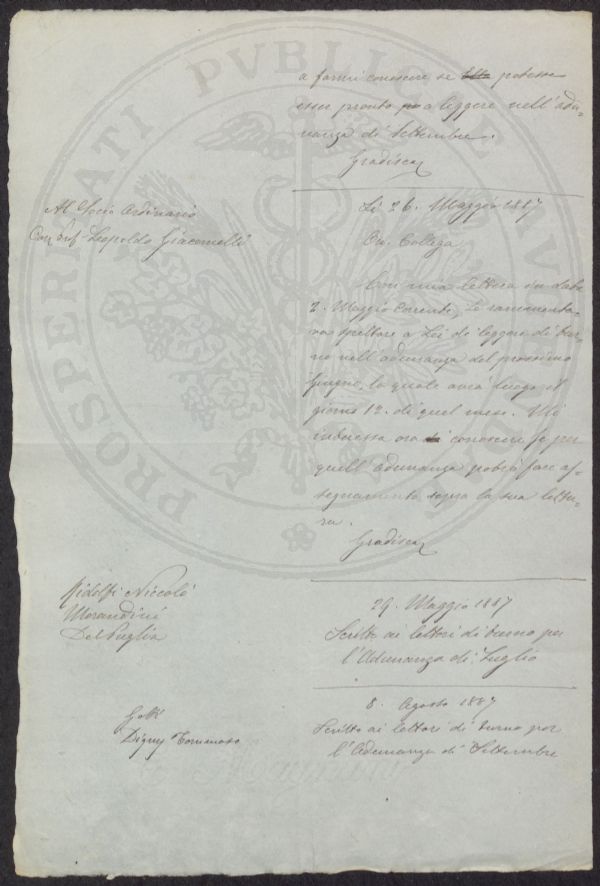 a farmi conoscere se potesse
esser pronto a leggere nell'adu-
nanza di Settembre.
Gradisca
Al Socio Ordinario
Leopoldo Giacomelli
Lì 26. Maggio 1887
On. Collega
Con mia lettera in data
2. Maggio corrente, Le rammenta-
va spettare a Lei di leggere di tur-
no nell'adunanza del prossimo
Giugno, la quale avrà luogo il
giorno 12. di quel mese. Mi
interessa ora conoscere se per
quell'adunanza potrò fare as-
segnamento sopra la sua lettu-
ra.
Gradisca
Ridolfi Niccolò
Morandini
Del Puglia
29. Maggio 1887
Scritto ai lettori di turno per
l'Adunanza di Luglio
Digny Tommaso
8. Agosto 1887
Scritto ai lettori di turno per
l'Adunanza di Settembre
PROSPERITATI PVBLICAE AVGENDAE